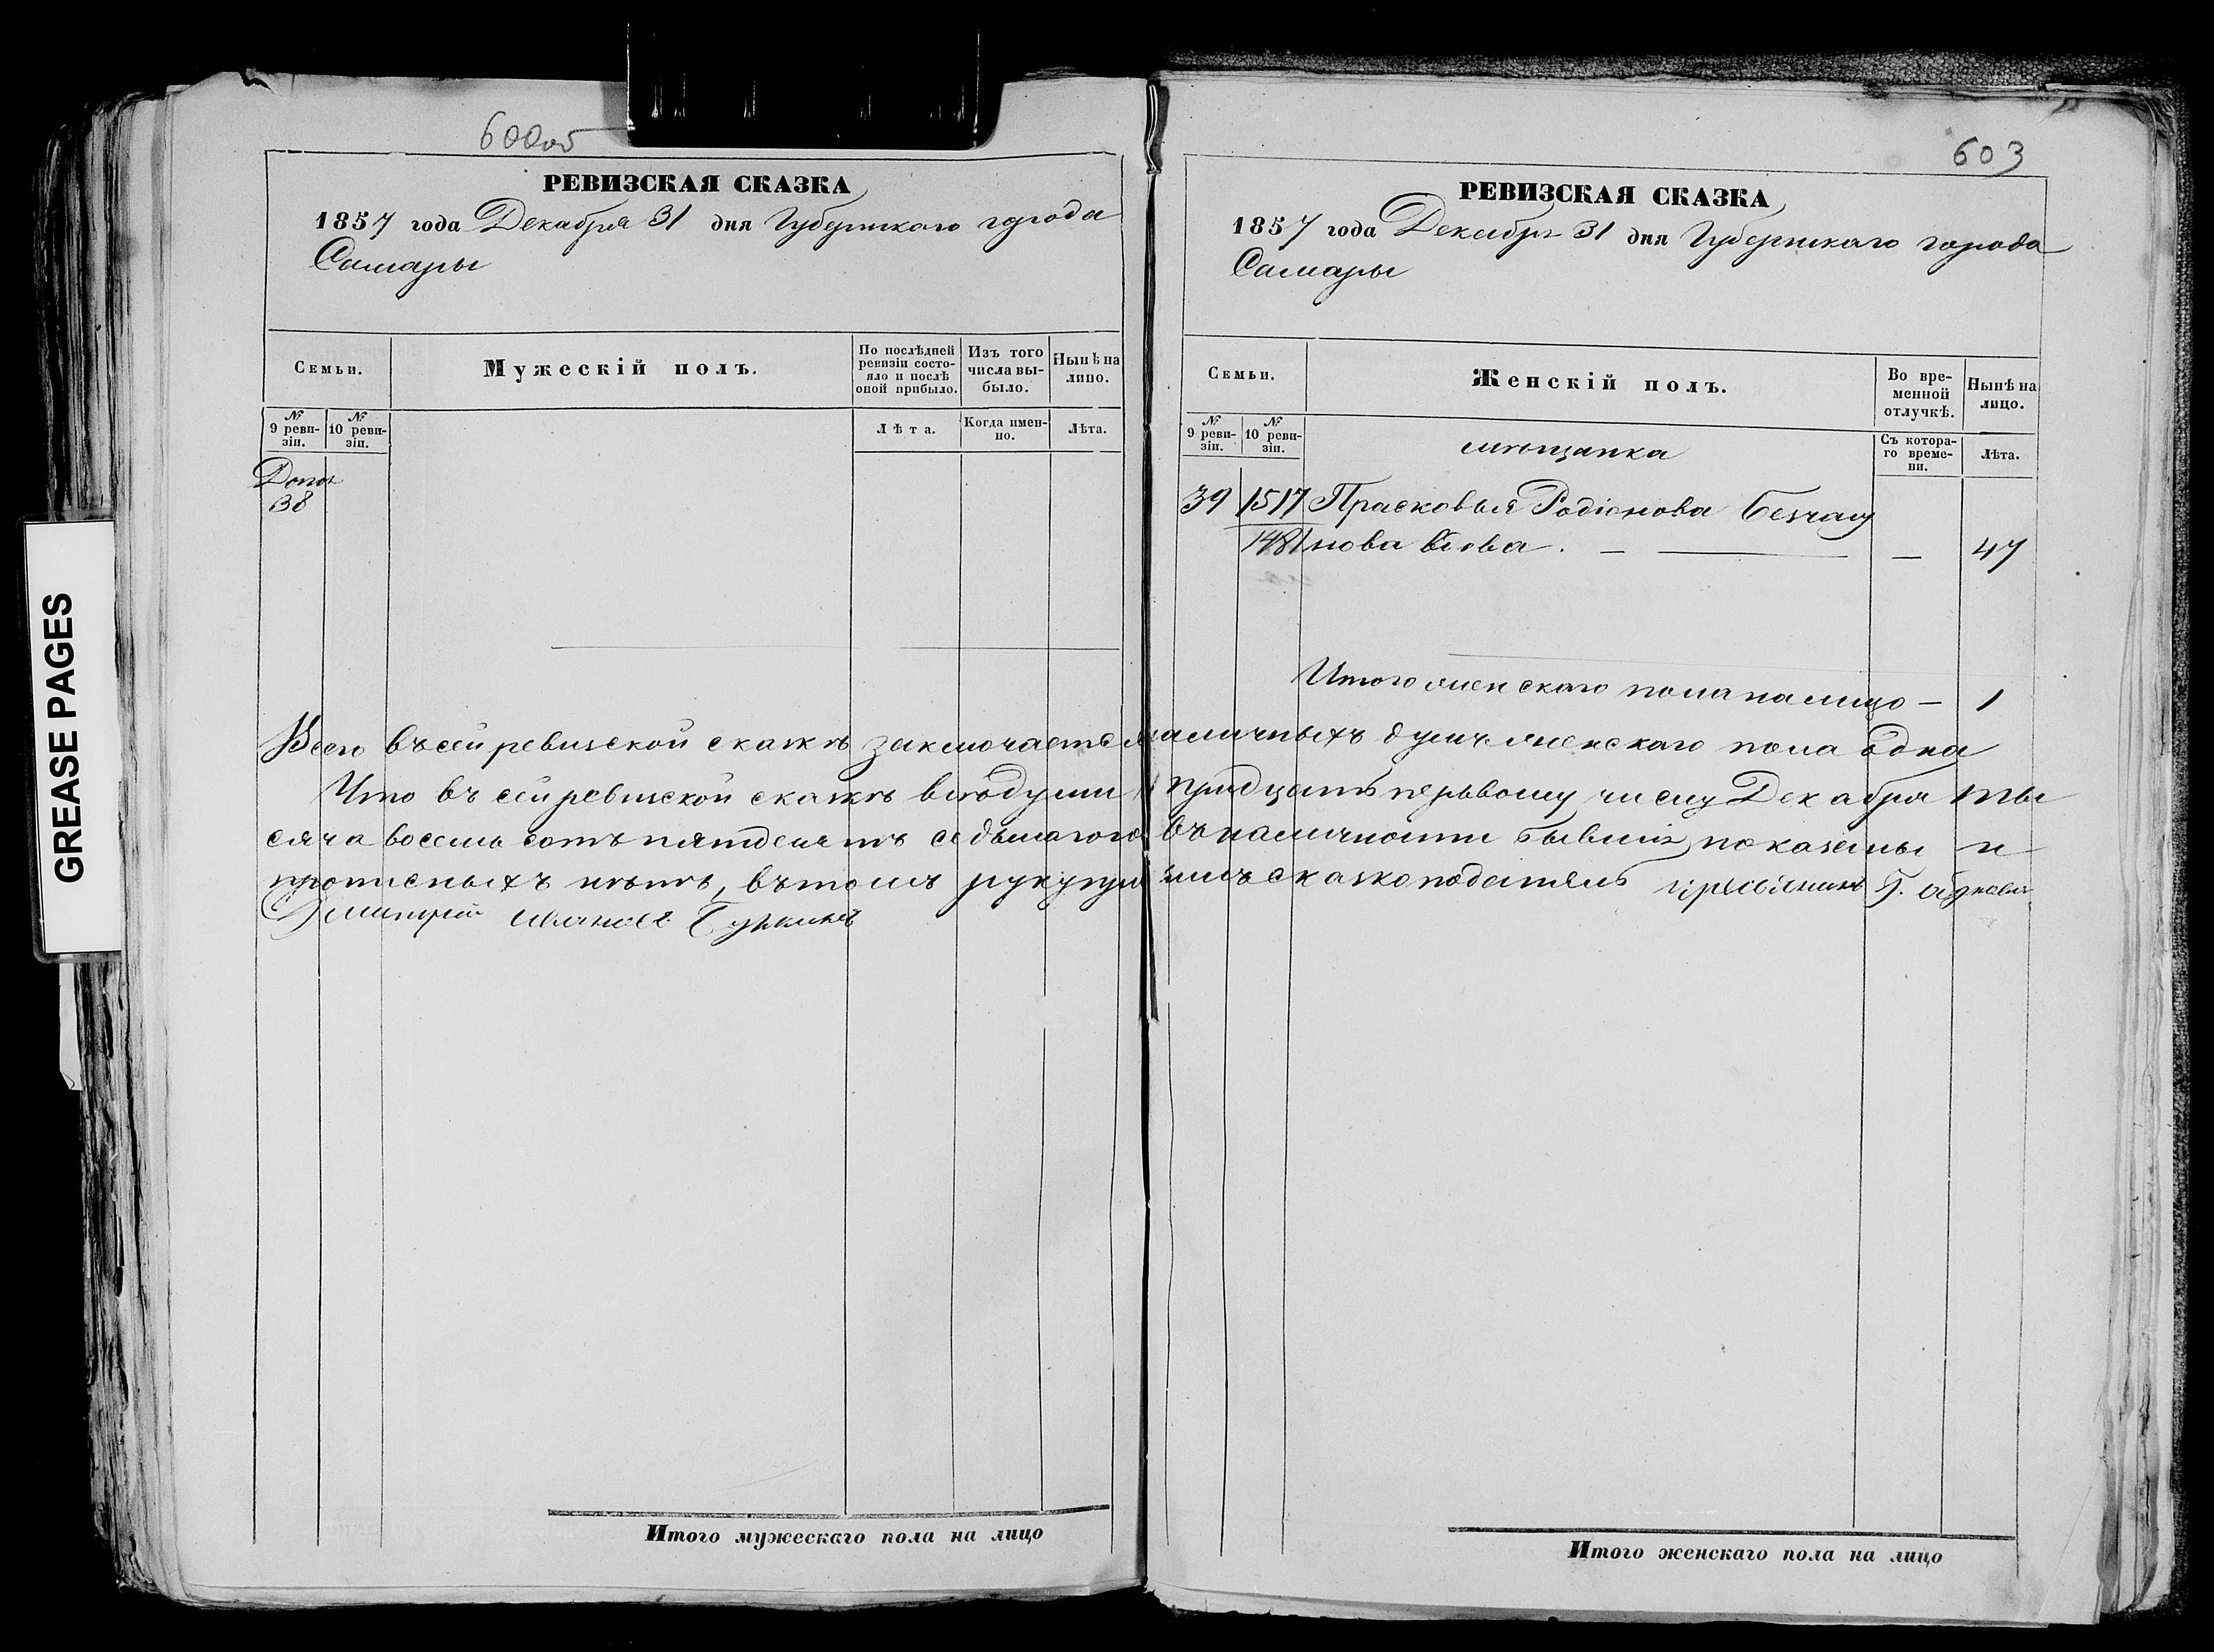 600об
РЕВИЗСКАЯ СКАЗКА
1857 года Декабря 31 дня Губернскаго города
Самары
Семьи.
Мужескій полъ.
По послѣдней ревизіи состояло и послѣ оной прибыло.
Изъ того числа выбыло.
Нынѣ на лицо.
№ 9 ревизіи.
№ 10 ревизіи.
Лѣта.
Когда именно.
Лѣта.
Допол
38
Всего въ сей ревизской сказкѣ заключается
Что въ сей ревизской сказкѣ всѣ души
сяча восемь сотъ пятдесятъ седьмаго го
прописныхъ нѣтъ, въ томъ
Дмитрій Ивановъ
Итого мужескаго пола на лицо
603
РЕВИЗСКАЯ СКАЗКА
1857 года Декабря 31 дня Губернскаго города
Самары
Семьи.
Женскій полъ.
Во временной отлучкѣ.
Нынѣ на лицо.
№ 9 ревизіи.
№ 10 ревизіи.
мѣщанка
Съ котораго времени.
Лѣта.
39 1517 Прасковья Родіонова
1481 нова вдова. — — — 47
Итого женскаго пола на лицо — 1
наличныхъ душъ женскаго пола одна
тридцать первому числу Декабря ты
въ наличности бывшія, показаны и
сказкоподатель
Итого женскаго пола на лицо
GREASE PAGES